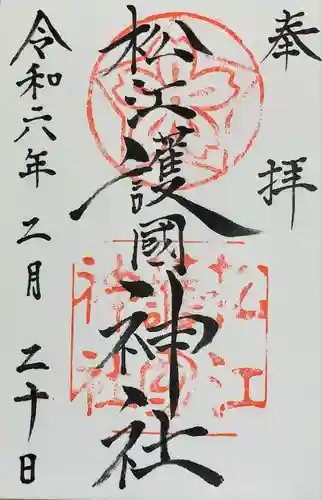 奉拝
松江護國神社
令和六年二月二十日